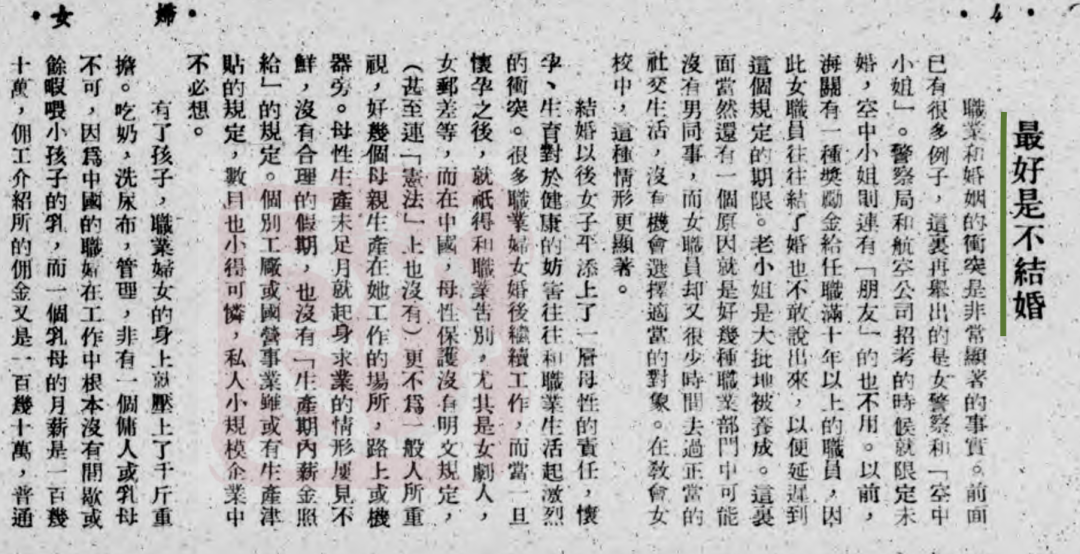 · 4 ·
婦女 ·
最好是不結婚
職業和婚姻的衝突是非常顯著的事實。前面
已有很多例子，這裏再舉出的是女警察和「空中
小姐」。警察局和航空公司招考的時候就限定未
婚，空中小姐則連有「朋友」的也不用。以前，
海關有一種獎勵金給任職滿十年以上的職員，因
此女職員往往結了婚也不敢說出來，以便延遲到
這個規定的期限。老小姐是大批地被養成。這裏
面當然還有一個原因就是好幾種職業部門中可能
沒有男同事，而女職員却又很少時間去過正當的
社交生活，沒有機會選擇適當的對象。在敎會女
校中，這種情形更顯著。
結婚以後女子平添上了一層母性的責任，懷
孕、生育對於健康的妨害往往和職業生活起激烈
的衝突。很多職業婦女婚後繼續工作，而當一旦
懷孕之後，就祇得和職業告別，尤其是女劇人，
女郵差等，而在中國，母性保護沒有明文規定，
（甚至連「憲法」上也沒有）更不爲一般人所重
視，好幾個母親生產在她工作的場所，路上或機
器旁。母性生產未足月就起身求業的情形屢見不
鮮，沒有合理的假期，也沒有「生產期內薪金照
給」的規定。個別工廠或國營事業雖或有生產津
貼的規定，數目也小得可憐，私人小規模企業中
不必想。
有了孩子，職業婦女的身上就壓上了千斤重
擔。吃奶，洗尿布，管理，非有一個傭人或乳母
不可，因爲中國的職婦在工作中根本沒有間歇或
餘暇喂小孩子的乳，而一個乳母的月薪是一百幾
十萬，佣工介紹所的佣金又是一百幾十萬，普通